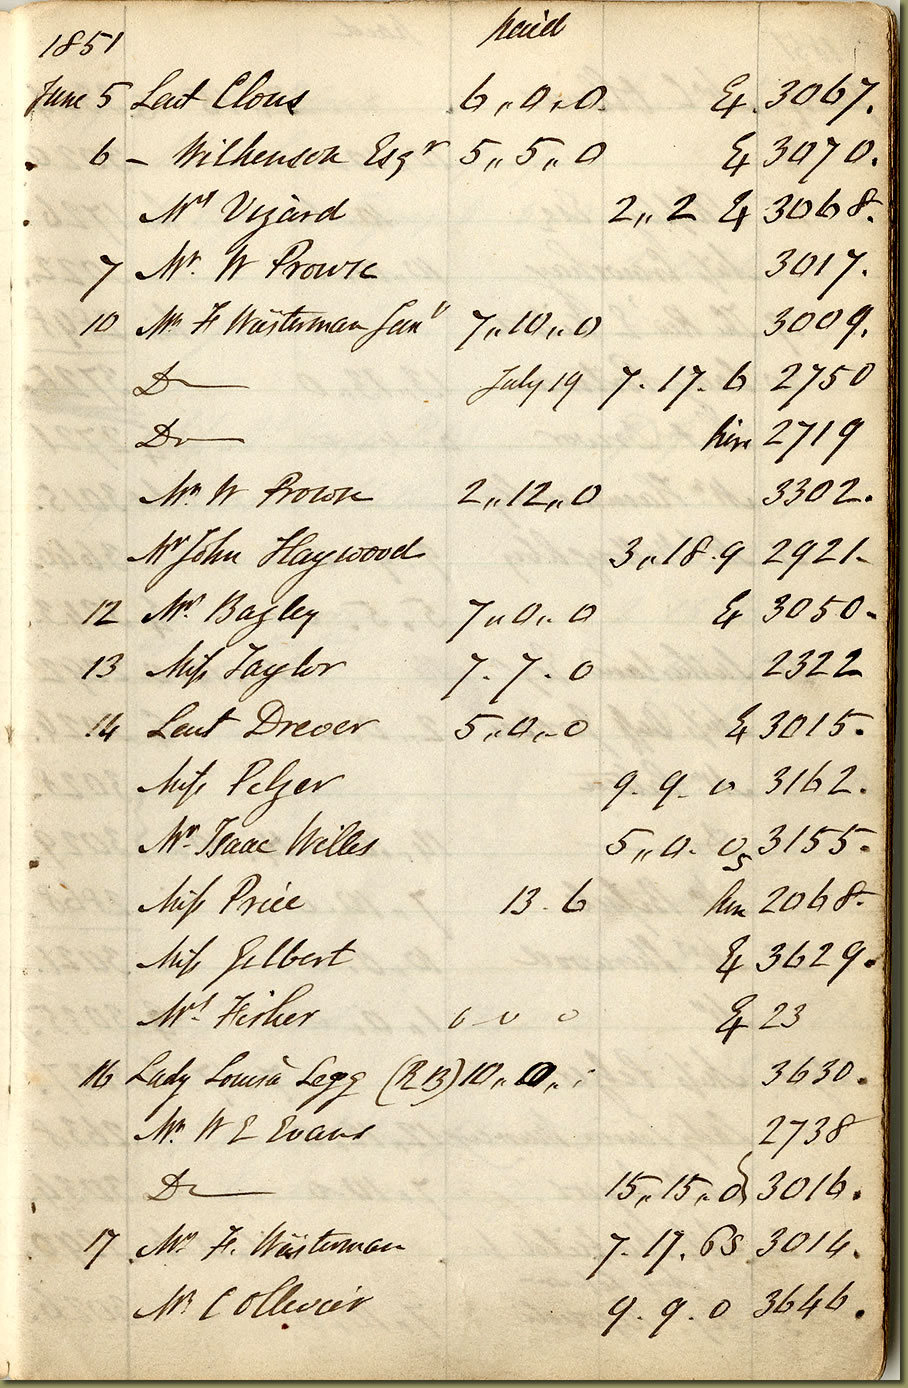 1851 Paid
June 5 Leut Clous 6,,0,,0 Ex 3067.
6 - Wilkenson Esqr 5,,5,,0 Ex 3070.
Mrs Vizard 2,,2 Ex 3068.
7 Mr. W Prowse 3017.
10 Mr F Wästerman 7,,10,,0 3009.
Do July 19 7. 17. 6 2750
Do hire 2719
Mr W Prowse 2,,12,,0 3302.
Mr John Haywood 3,,18.9 2921.
12 Mr. Bagley 7,,0,,0 Ex 3050.
13 Miss Taylor 7. 7. 0 2322
14 Leut Drever 5,,0,,0 Ex 3015.
Miss Pelzer 9. 9. 0 3162.
Mr. Isaac Willes 5,,0. 0s 3155.
Miss Price 13. 6 hire 2068.
Miss Gelbert Ex 3629.
Mrs. Fisher 0 0 0 Ex 23
16 Lady Louisa Legg (RB) 10,,0,, 3630.
Mr. W E Evans 2738
Do 15,,15,,0s 3016.
17 Mr F. Wästerman 7. 17. 6s 3014.
Mr C Ollivier 9. 9. 0 3646.